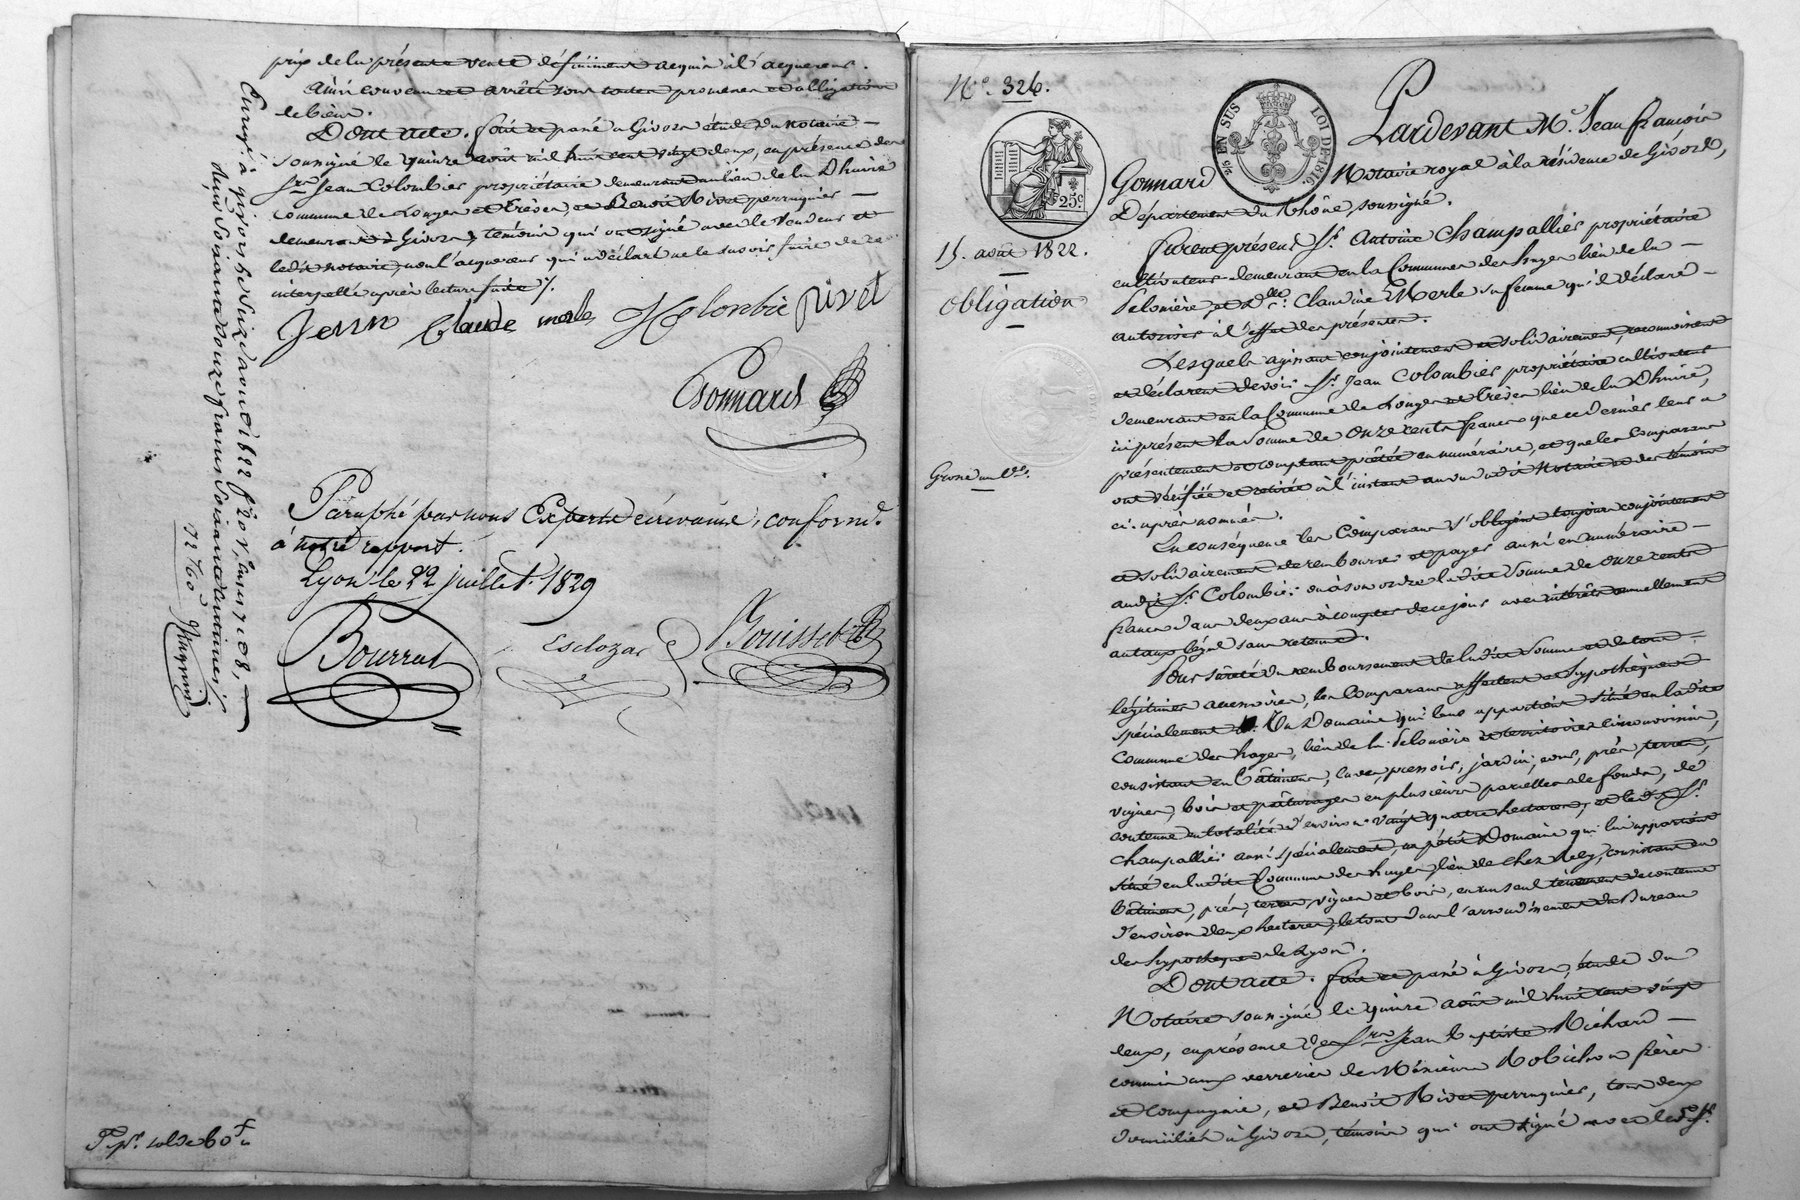 prix de la présente vente définiment acquis à l'acquereur.
Ainsi convenu et arrêté sous toutes promesses et obligations
de bien.
Dont acte. fait et passé à Givors étude du notaire
soussigné le quinze août mil huit cent vingt deux, en présence des
Srs Jean Colombier propriétaire demeurant au lieu de la Dhuire
commune de Longes et Trèves, et Benoit Rivet perruquier
demeurant à Givors, témoins qui ont signé avec le vendeur et
ledit notaire, non l'acquereur qui a déclaré ne le savoir faire de ce
interpellé après lecture faite /.
Jean Claude merle Colonbié rivet
Gonnard
Enregé à givors le seize aout 1822 fo 201
reçu soixante douze francs soixante centimes
72 f 60
Paraphé par nous Experts écrivains, conformt
à notre rapport.
Lyon le 22 juillet 1829
Bourrat Esclozas Bouisset
No 326.
25 EN SUS LOI DE 1816.
25c
15. août 1822.
Obligation
Grosse
Pardevant Me Jean françois
Gonnard Notaire royal à la résidence de Givors,
Département du Rhône, soussigné.
furent présens Sr Antoine Champallier propriétaire
cultivateur demeurant en la Commune des hayes lieu de la
Pelonière, et dlle Claudine Merle sa femme qu'il déclare
autoriser à l'effet des présentes.
Lesquels agissant conjointement et solidairement, reconnoissent
et déclarent devoir à Sr Jean Colombier propriétaire cultivateur
demeurant en la Commune de Longes et Trèves lieu de la Dhuire,
ici présent la somme de Onze cents francs que ce dernier leur a
présentement et comptant prêtée en numéraire, et que les Comparans
ont vérifiée et retirée à l'instant au vu dudit Notaire et des témoins
ci-après nommés.
En conséquence les Comparans s'obligent toujours conjointement
et solidairement de rembourser et payer aussi en numéraire
audit Sr Colombier ou à son ordre ladite somme de Onze cents
francs dans deux ans à compter de ce jour avec intérêts annuellement
au taux légal sans retenue.
Pour sûreté du remboursement de ladite somme et de tous
légitimes accessoires, les Comparans affectent et hypothèquent
spécialement Un Domaine qui leur appartient situé en ladite
Commune des hayes, lieu de la Pelonière et territoires circonvoisins,
consistant en Bâtimens, cuves, pressoir, jardin, cour, prés, terres,
vignes, bois et pâturages en plusieurs parcelles de fonds, de
contenue en totalité d'environ vingt quatre hectares, et ledit Sr
Champallier aussi spécialement, un petit Domaine qui lui appartient
situé en ladite Commune des hayes lieu de chez Rey, consistant en
bâtiment, prés, terres, vignes et bois, en un seul tènement de contenue
d'environ deux hectares, le tout dans l'arrondissement du Bureau
des hypothèques de Lyon.
Dont acte. fait et passé à Givors, étude du
Notaire soussigné le quinze août mil huit cent vingt
deux, en présence des Srs Jean Baptiste Richard
commis aux verreries de Messieurs Robichon frères
et Compagnie, et Benoit Rivet perruquier, tous deux
domiciliés à Givors, témoins qui ont signé avec led. Sr